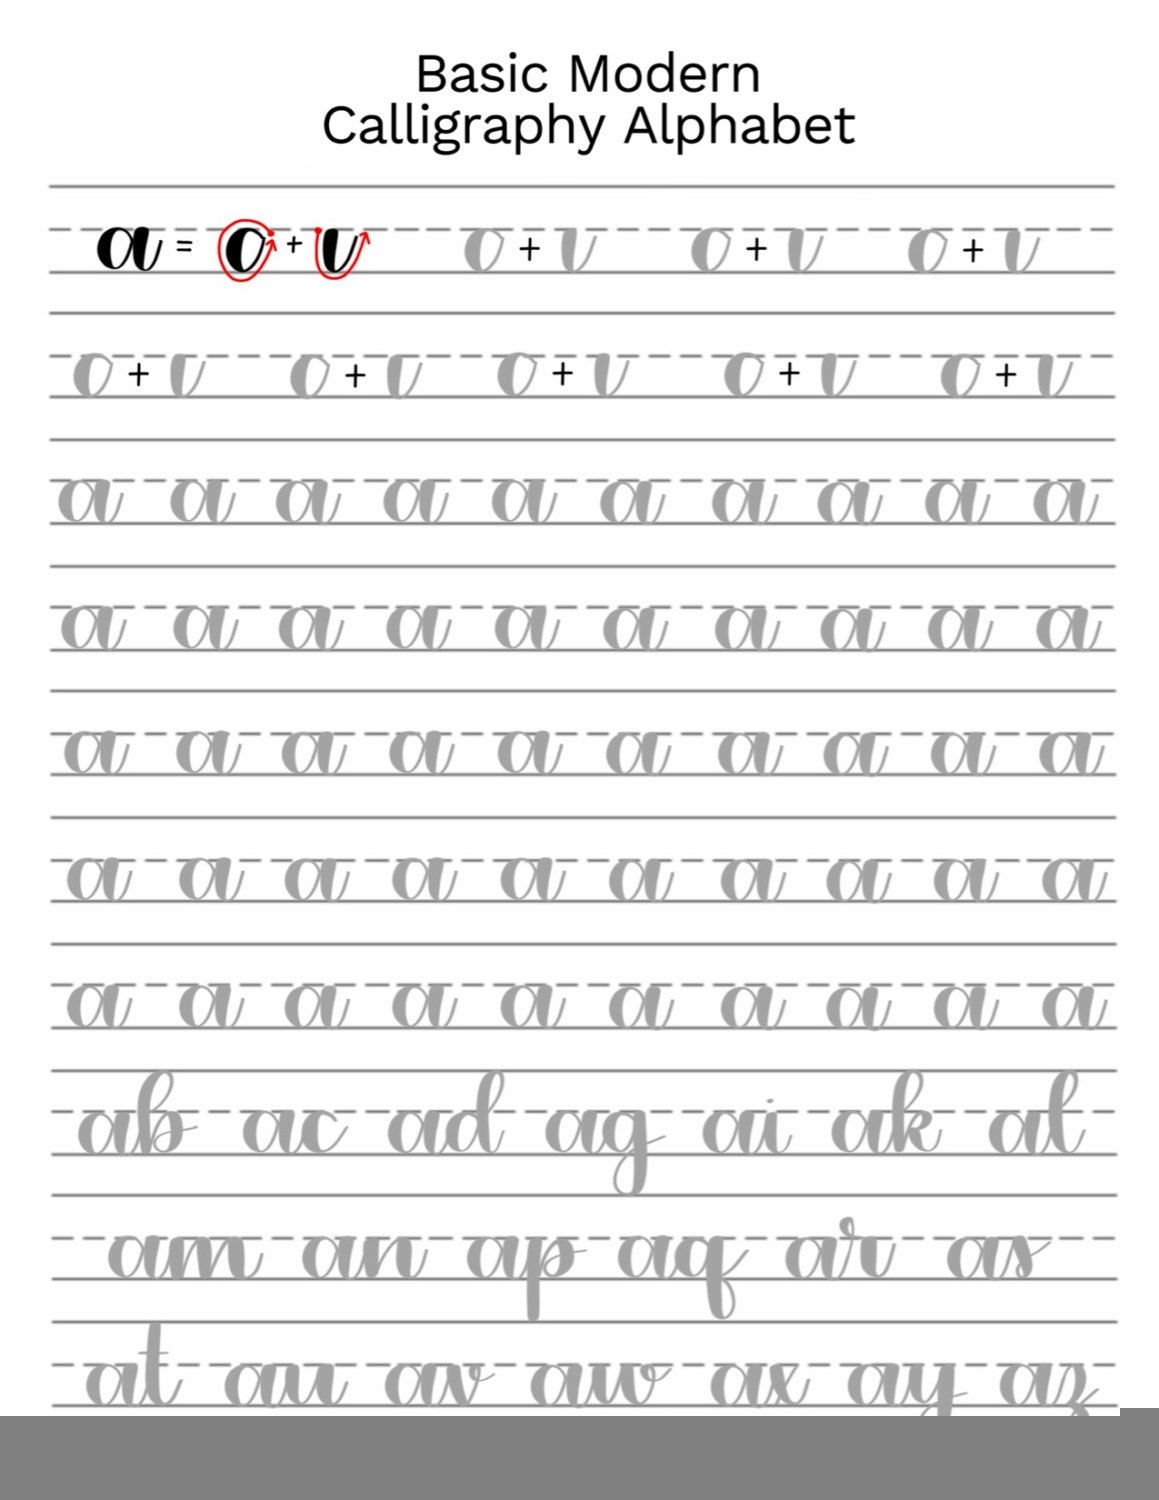 Basic Modern
Calligraphy Alphabet
a = o + v o + v o + v o + v
o + v o + v o + v o + v o + v
a a a a a a a a a a
a a a a a a a a a a
a a a a a a a a a a
a a a a a a a a a a
a a a a a a a a a a
ab ac ad ag ai ak al
am an ap aq ar as
at au av aw ax ay az